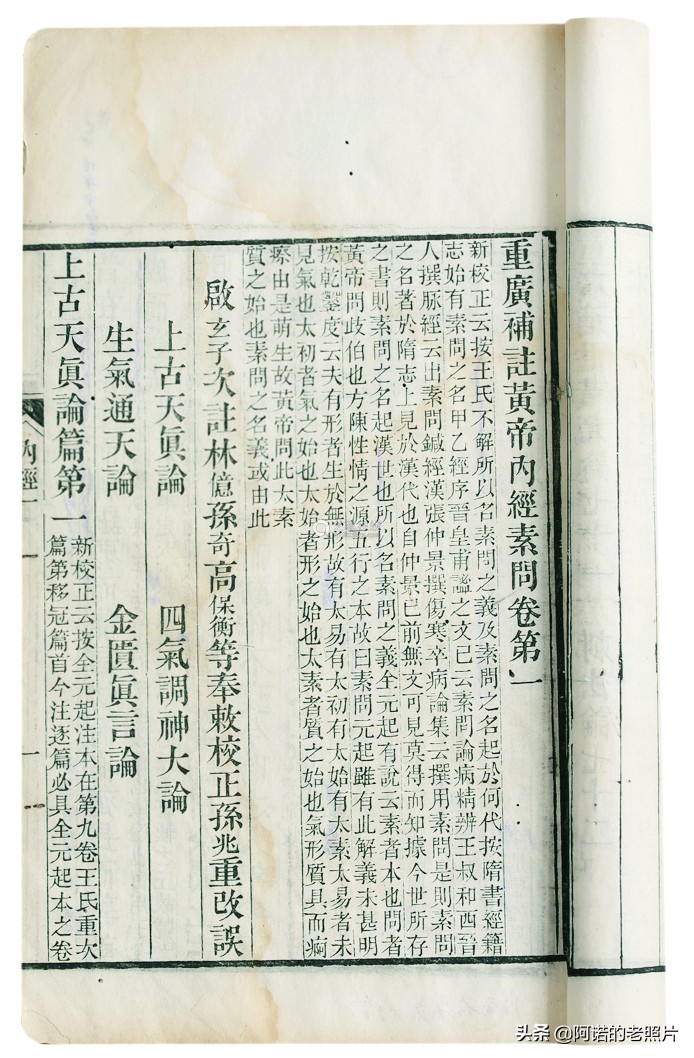 重廣補註黃帝內經素問卷第一
新校正云按王氏不解所以名素問之義及素問之名起於何代按隋書經籍
志始有素問之名甲乙經序晉皇甫謐之文已云素問論病精辨王叔和西晉
人撰脉經云出素問鍼經漢張仲景撰傷寒卒病論集云撰用素問是則素問
之名著於隋志上見於漢代也自仲景已前無文可見莫得而知據今世所存
之書則素問之名起漢世也所以名素問之義全元起有說云素者本也問者
黃帝問歧伯也方陳性情之源五行之本故曰素問元起雖有此解義未甚明
按乾鑿度云夫有形者生於無形故有太易有太初有太始有太素太易者未
見氣也太初者氣之始也太始者形之始也太素者質之始也氣形質具而痾
瘵由是萌生故黃帝問此太素
質之始也素問之名義或由此
啟玄子次註林億孫奇高保衡等奉敕校正孫兆重改誤
上古天眞論 四氣調神大論
生氣通天論 金匱眞言論
上古天眞論篇第一 新校正云按全元起注本在第九卷王氏重次
篇第移冠篇首今注逐篇必具全元起本之卷
內經一
一
头条 @阿诺的老照片